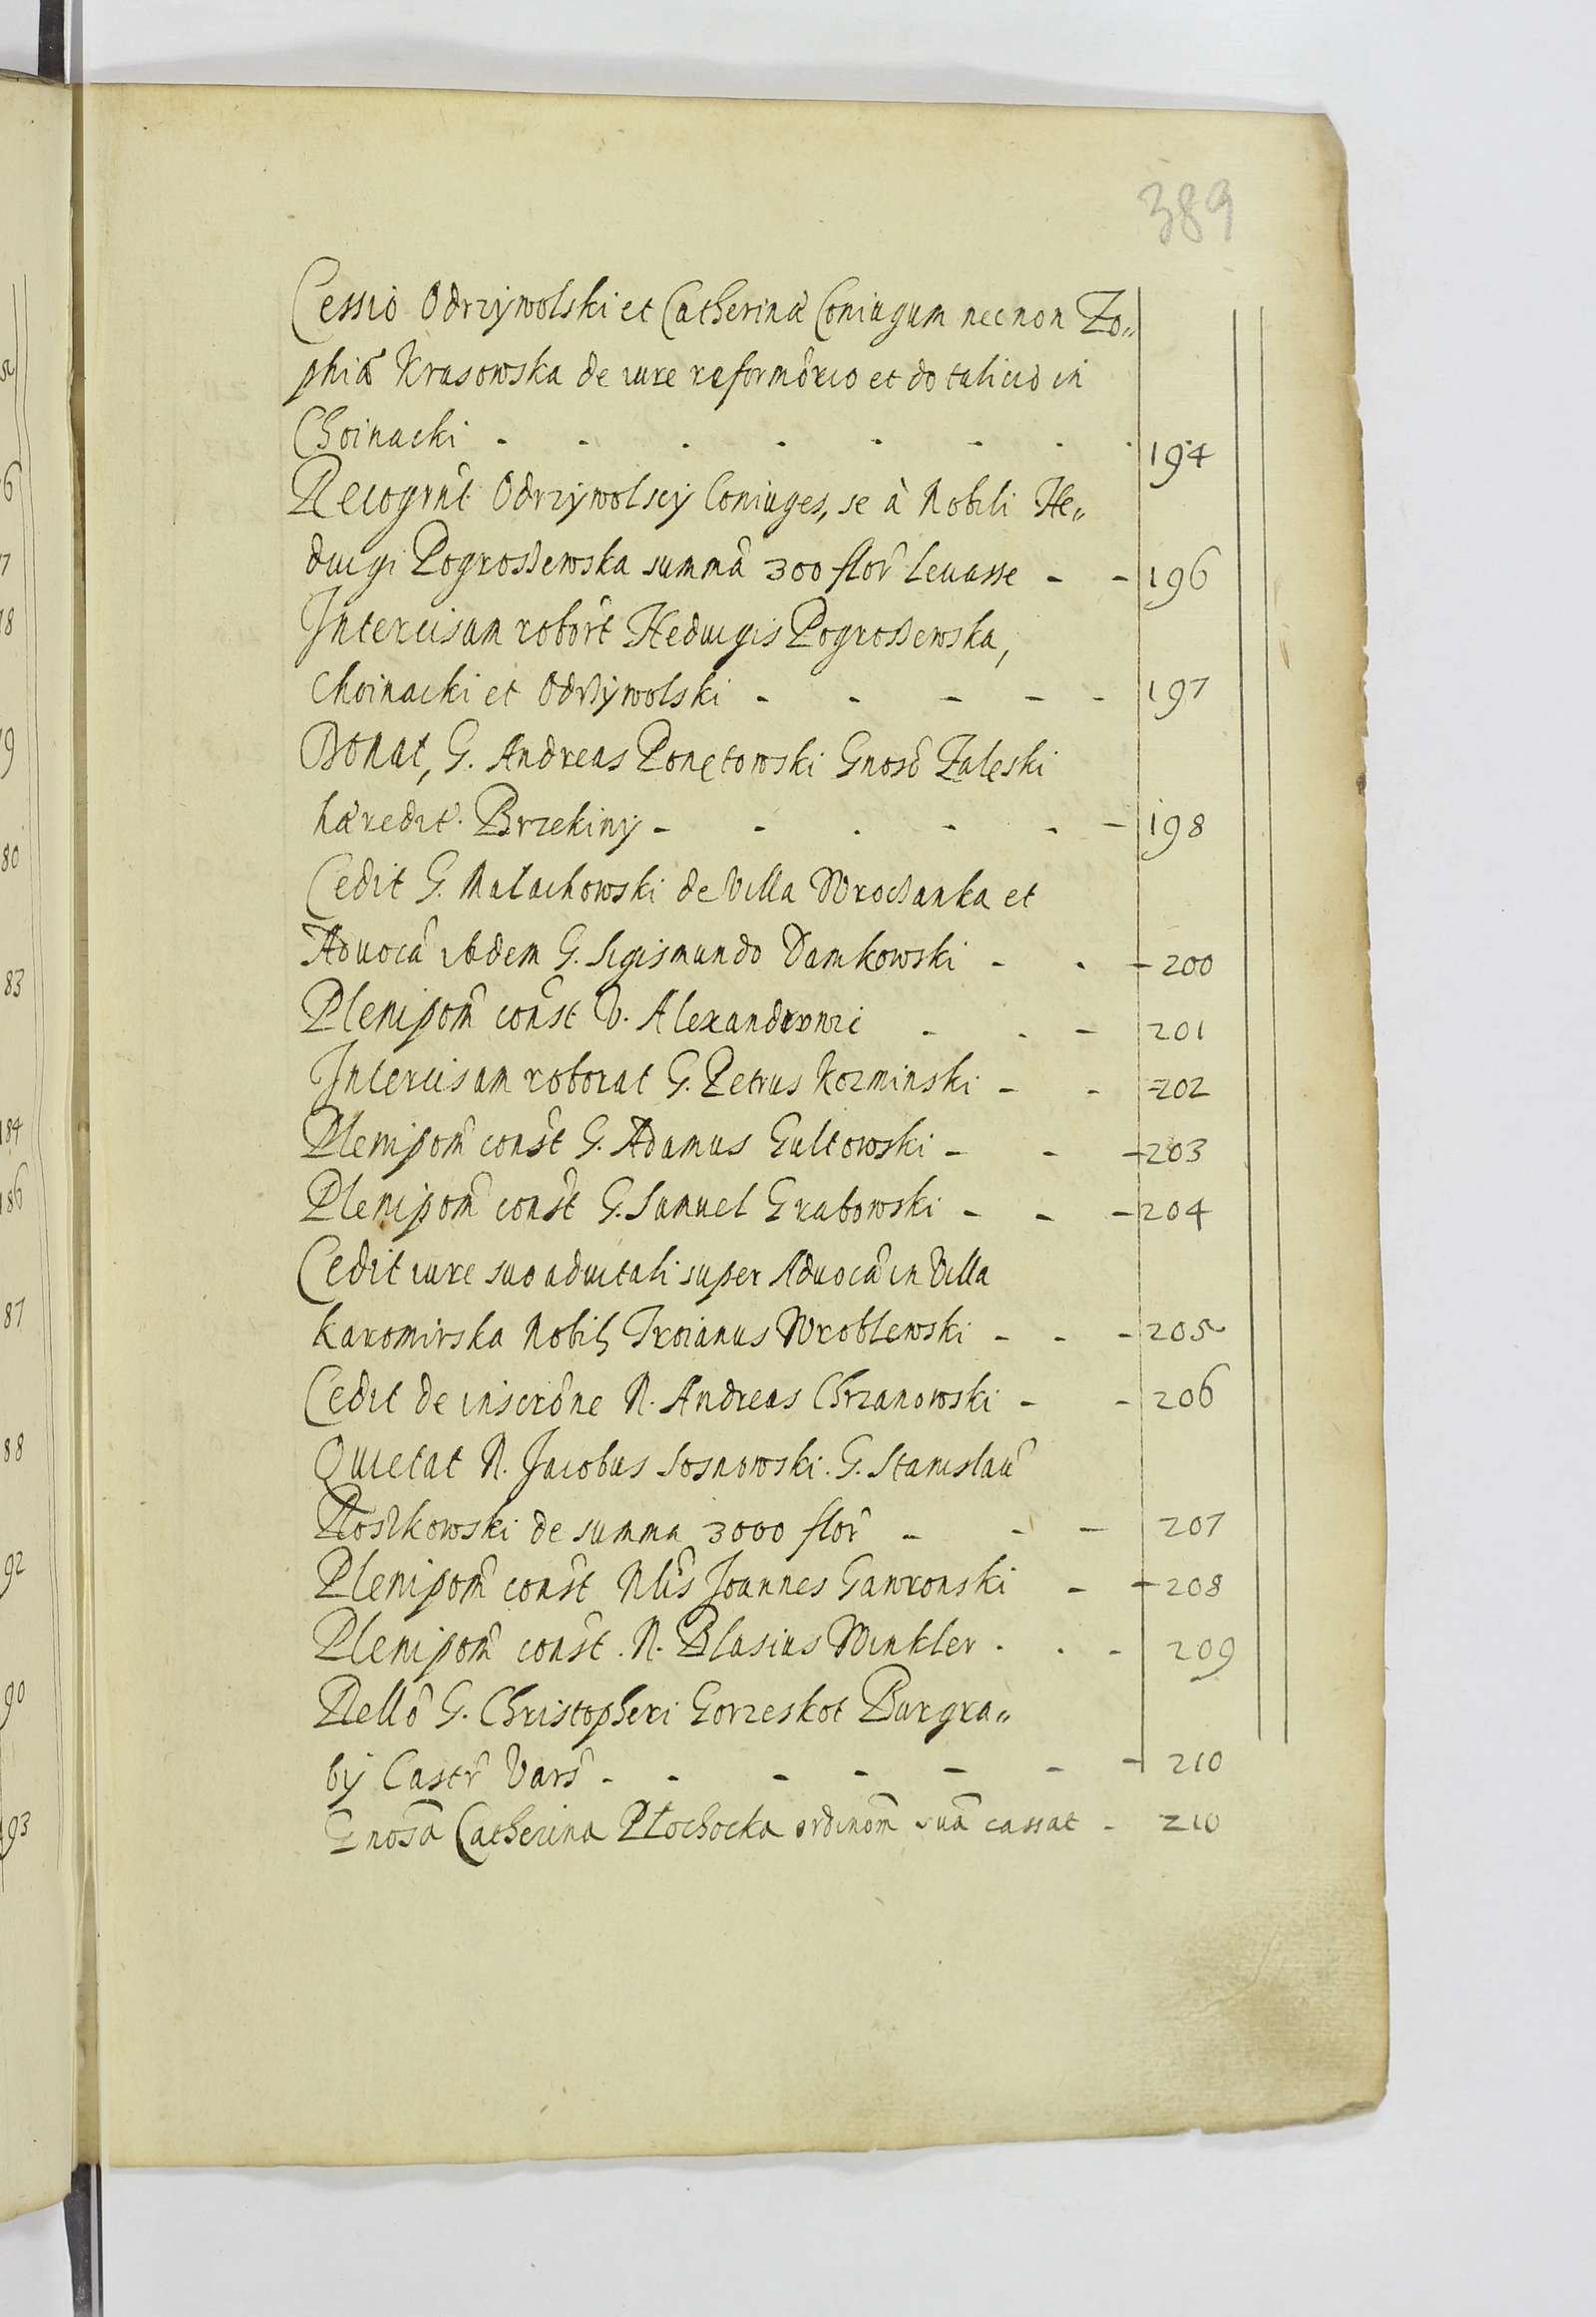 389
Cessio Odrzywolski et Catherinæ Coniugum nec non Zo„
phiæ Krasowska de iure reform̂orio et dotalicio in
Choinacki - - - - - - - 194
Recogn̂t Odrzywolscÿ Coniuges, se à Nobili He„
duigi Pogrossewska summâ 300 flor̂ levasse - - 196
Intercisam robor̂t Heduigis Pogrossewska,
Choinacki et Odrzÿwolski - - - - - 197
Donat, G. Andreas Ponętowski Gnosô Zaleski
hæredit. Brzekinÿ - - - - - - 198
Cedit G. Małachowski de Villa Wrocsanka et
Advocâ ibidem G. Sigismundo Damkowski - - - 200
Plenipom̂ con̂st V. Alexandrowic - - - 201
Intercisam roborat G. Petrus Kozminski - - 202
Plenipom̂ con̂st G. Adamus Gultowski - - - 203
Plenipom̂ con̂st G. Samuel Grabowski - - - 204
Cedit iure suo advitali super Advocâ in Villa
Karomirska Nobilis Troianus Wroblewski - - - 205
Cedit de inscrône N. Andreas Chrzanowski - - 206
Quietat N. Jacobus Sosnowski. G. Stanislaû
Roszkowski de summa 3000 flor̂ - - - 207
Plenipom̂ con̂st Nlîs Joannes Gawronski - - 208
Plenipom̂ con̂st. N. Blasius Winkler - - - 209
Rellô G. Christopheri Gorzeskot Burgra„
bÿ Castr̂ Varŝ - - - - - - - 210
Gnosâ Catherina Płochocka ordinom̂ suâ cassat - 210